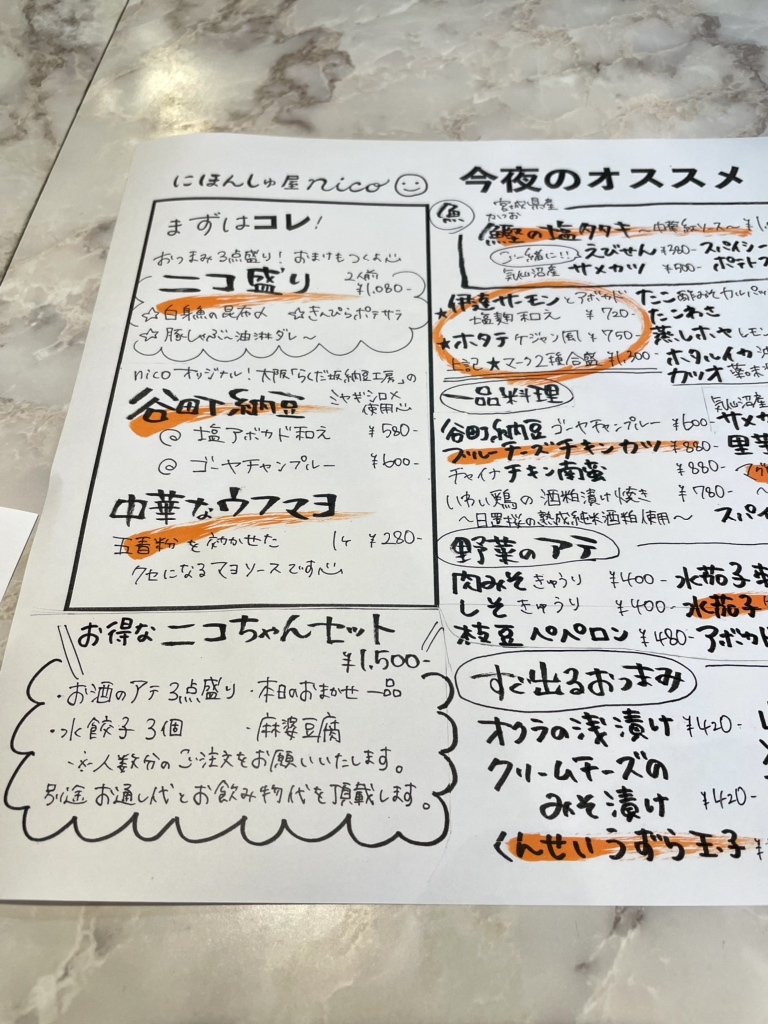 にほんしゅ屋 nico
まずはコレ!
おつまみ3点盛り! おまけもつくよ
ニコ盛り 2人前 ¥1,080-
☆白身魚の昆布〆 ☆きんぴらポテサラ
☆豚しゃぶ〜油淋ダレ〜
nicoオリジナル!大阪「らくだ坂納豆工房」の
谷町納豆 ミヤギシロメ使用
@ 塩アボカド和え ¥580-
@ ゴーヤチャンプルー ¥600-
中華なウフマヨ
五香粉を効かせた 1ヶ ¥280-
クセになるマヨソースです
お得なニコちゃんセット
¥1,500-
・お酒のアテ3点盛り ・本日のおまかせ一品
・水餃子3個 ・麻婆豆腐
※人数分のご注文をお願いいたします。
別途お通し代とお飲み物代を頂戴します。
今夜のオススメ
魚
宮城県産
かつお
鰹の塩タタキ 〜中華紅ソース〜
ご一緒に!! えびせん ¥380- スパイシー
気仙沼産 サメカツ ¥900- ポテト
★伊達サーモンとアボカド
塩麹和え ¥720-
★ホタテ ケジャン風 ¥750
上記★マーク2種合盛 ¥1,300-
たこ
たこわさ
蒸しホヤ レモン
ホタルイカ
カツオ 薬味
一品料理
谷町納豆 ゴーヤチャンプルー ¥600-
ブルーチーズチキンカツ ¥880-
チャイナチキン南蛮 ¥880-
いわい鶏の酒粕漬け焼き ¥780-
〜日置桜の熟成純米酒粕使用〜
気仙沼産
サメ
スパイ
野菜のアテ
肉みそきゅうり ¥400-
しそきゅうり ¥400-
枝豆ペペロン ¥480-
水茄子
水茄子
アボカド
すぐ出るおつまみ
オクラの浅漬け ¥420-
クリームチーズの
みそ漬け ¥420-
くんせいうずら玉子